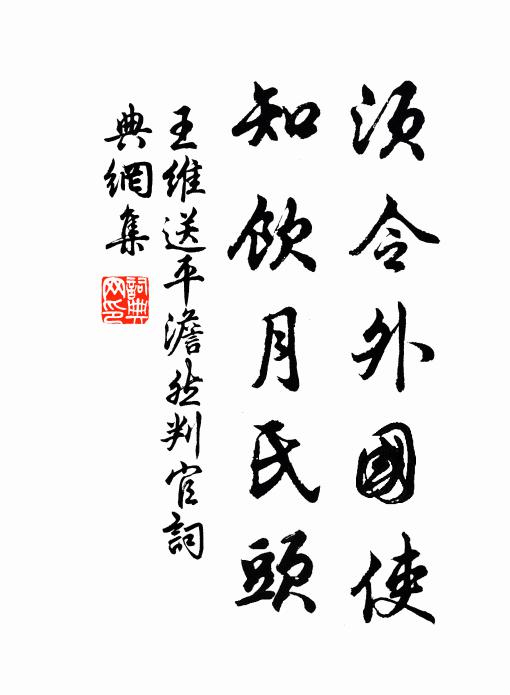 須令外國使
知飲月氏頭
王維送平澹然判官詞
典網集
詞典
网印